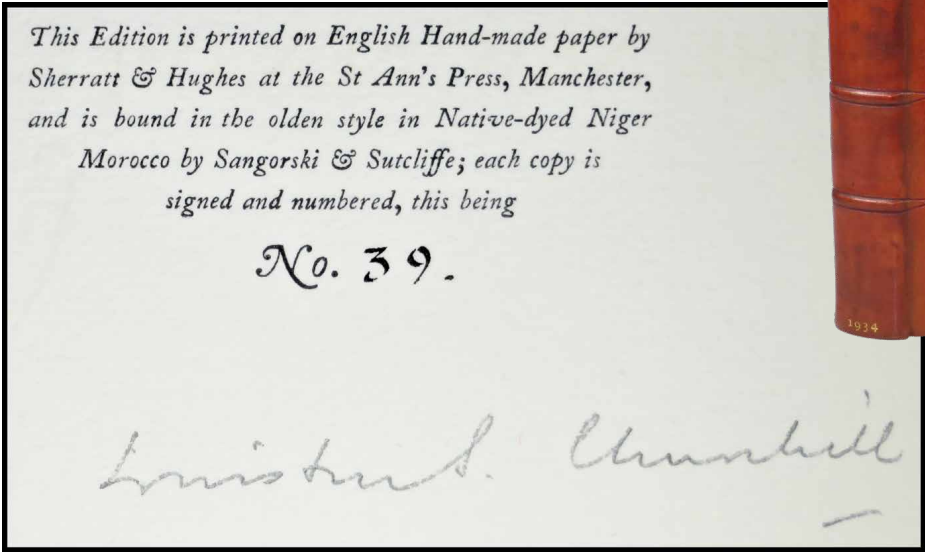 This Edition is printed on English Hand-made paper by
Sherratt & Hughes at the St Ann's Press, Manchester,
and is bound in the olden style in Native-dyed Niger
Morocco by Sangorski & Sutcliffe; each copy is
signed and numbered, this being
No. 39.
1934
Winston S. Churchill